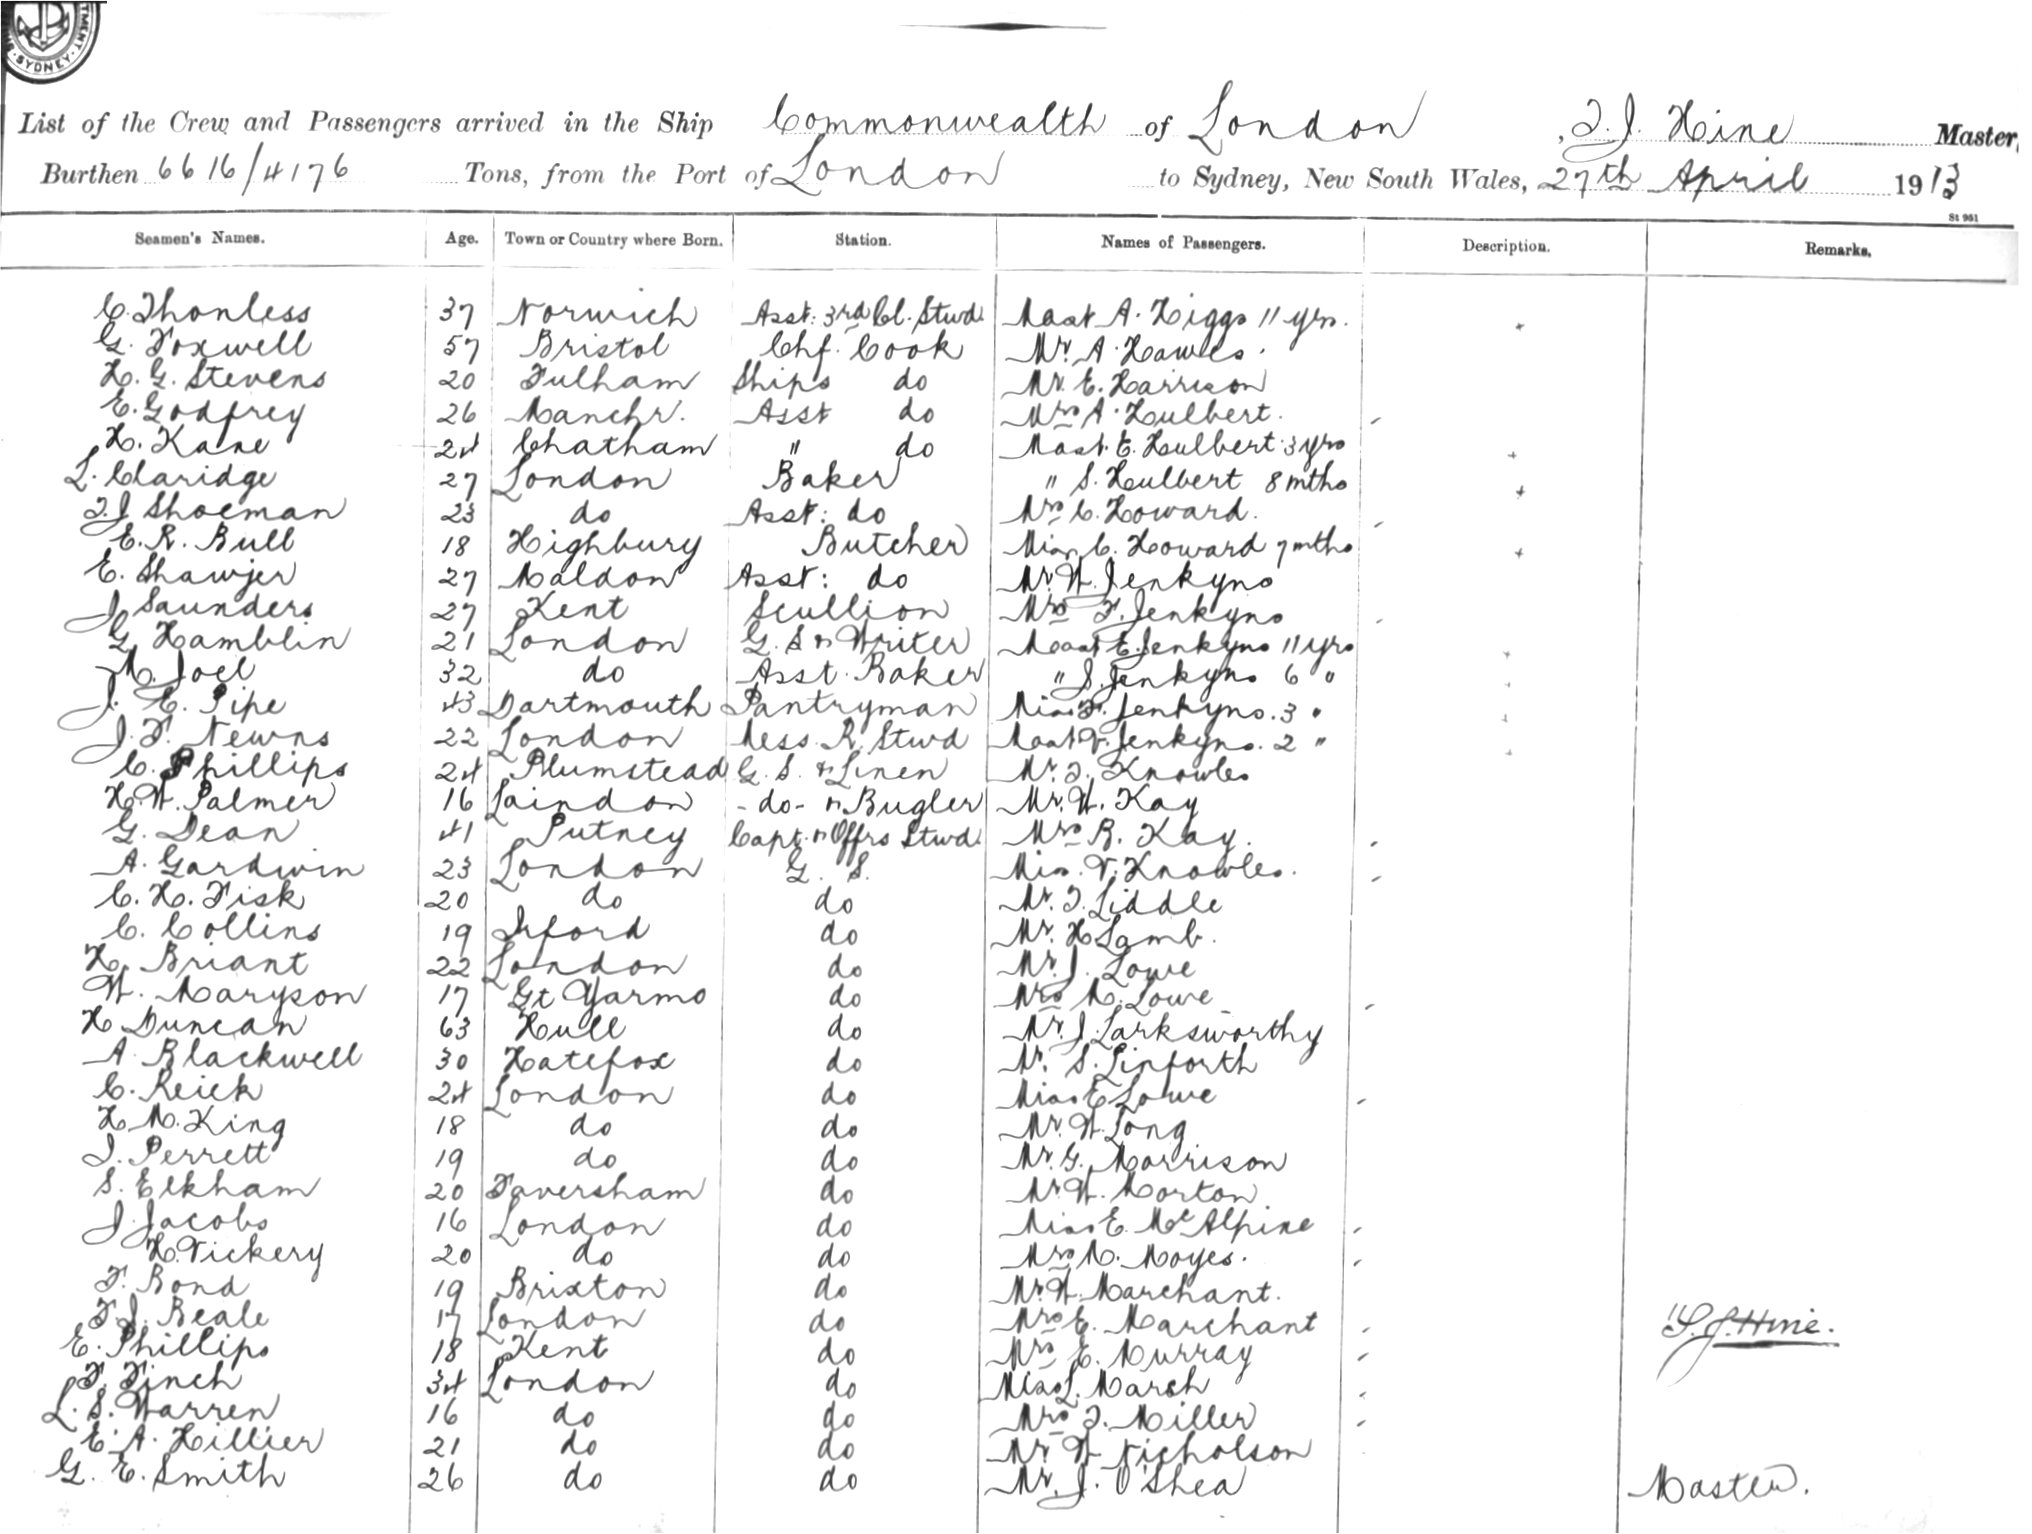 TMENT. SYDNEY
List of the Crew and Passengers arrived in the Ship Commonwealth of London, T. J. Hine Master,
Burthen 6616/4176 Tons, from the Port of London to Sydney, New South Wales, 27th April 1913
St 961
Seamen's Names. Age. Town or Country where Born. Station. Names of Passengers. Description. Remarks.
C. Thonless 37 Norwich Asst: 3rd Cl. Stwd. Mast A. Higgs 11 yrs.
G. Foxwell 57 Bristol Chf. Cook Mr. A. Hawes.
H. G. Stevens 20 Fulham Ships do Mr. E. Harrison
E. Godfrey 26 Manchr. Asst do Mrs A. Hulbert.
H. Kane 24 Chatham " do Mast. E. Hulbert 3 yrs
L. Claridge 27 London Baker " S. Hulbert 8 mths
T. J Shoeman 23 do Asst: do Mrs C. Howard.
E. R. Bull 18 Highbury Butcher Miss C. Howard 7 mths
E. Shawjer 27 Maldon Asst: do Mr. W. Jenkyns
J Saunders 27 Kent Scullion Mrs F. Jenkyns
G. Hamblin 21 London G. S & Writer Mast E. Jenkyns 11 yrs
M. Joel 32 do Asst. Baker " S. Jenkyns 6 "
J. E. Pipe 43 Dartmouth Pantryman Miss F. Jenkyns. 3 "
J. F. Newns 22 London Mess. R. Stwd Mast V. Jenkyns. 2 "
C. Phillips 24 Plumstead G. S. & Linen Mr. T. Knowles
H. W. Palmer 16 Laindon - do - & Bugler Mr. W. Kay
G. Dean 41 Putney Capt. & Offrs Stwd. Mrs R. Kay.
A. Gardwin 23 London G. S. Miss. V. Knowles.
C. H. Fisk 20 do do Mr. T. Liddle
C. Collins 19 Ilford do Mr. H Lamb.
H. Briant 22 London do Mr. J. Lowe
W. Maryson 17 Gt Yarmo do Mrs M. Lowe
H Duncan 63 Hull do Mr. J. Larksworthy
A. Blackwell 30 Hatefox do Mr. S. Linforth
C. Reick 24 London do Miss E Lowe
H. M. King 18 do do Mr. W. Long
J. Perrett 19 do do Mr. G. Morrison
S. Elkham 20 Faversham do Mr. W. Morton
J. Jacobs 16 London do Miss E. McAlpine
H. Vickery 20 do do Mrs M. Moyes.
F. Bond 19 Brixton do Mr. W. Marchant.
F. J. Beale 17 London do Mrs E. Marchant T. J. Hine.
E. Phillips 18 Kent do Mrs E. Murray
F. Finch 34 London do Miss L. Marsh
L. S. Warren 16 do do Mrs T. Miller
E. A. Hillier 21 do do Mr. W Nicholson
G. E. Smith 26 do do Mr. J. O'Shea Master.